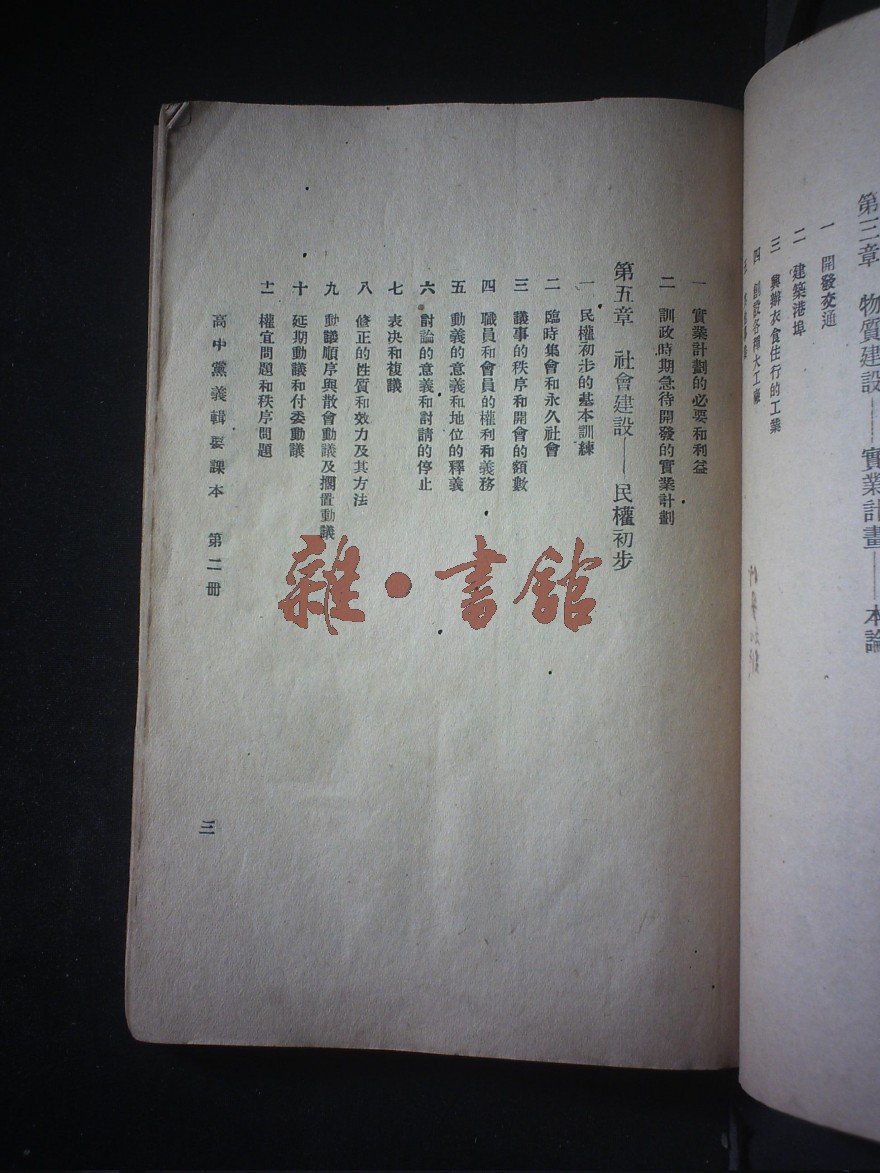 第三章 物質建設——實業計畫——本論
一 開發交通
二 建築港埠
三 興辦衣食住行的工業
四 創設各種大工廠
一 實業計劃的必要和利益
二 訓政時期急待開發的實業計劃
第五章 社會建設——民權初步
一 民權初步的基本訓練
二 臨時集會和永久社會
三 議事的秩序和開會的額數
四 職員和會員的權利和義務
五 動義的意義和地位的釋義
六 討論的意義和討請的停止
七 表决和複議
八 修正的性質和效力及其方法
九 動議順序與散會動議及擱置動議
十 延期動議和付委動議
十一 權宜問題和秩序問題
高中黨義輯要課本 第二冊
三
雜·書館